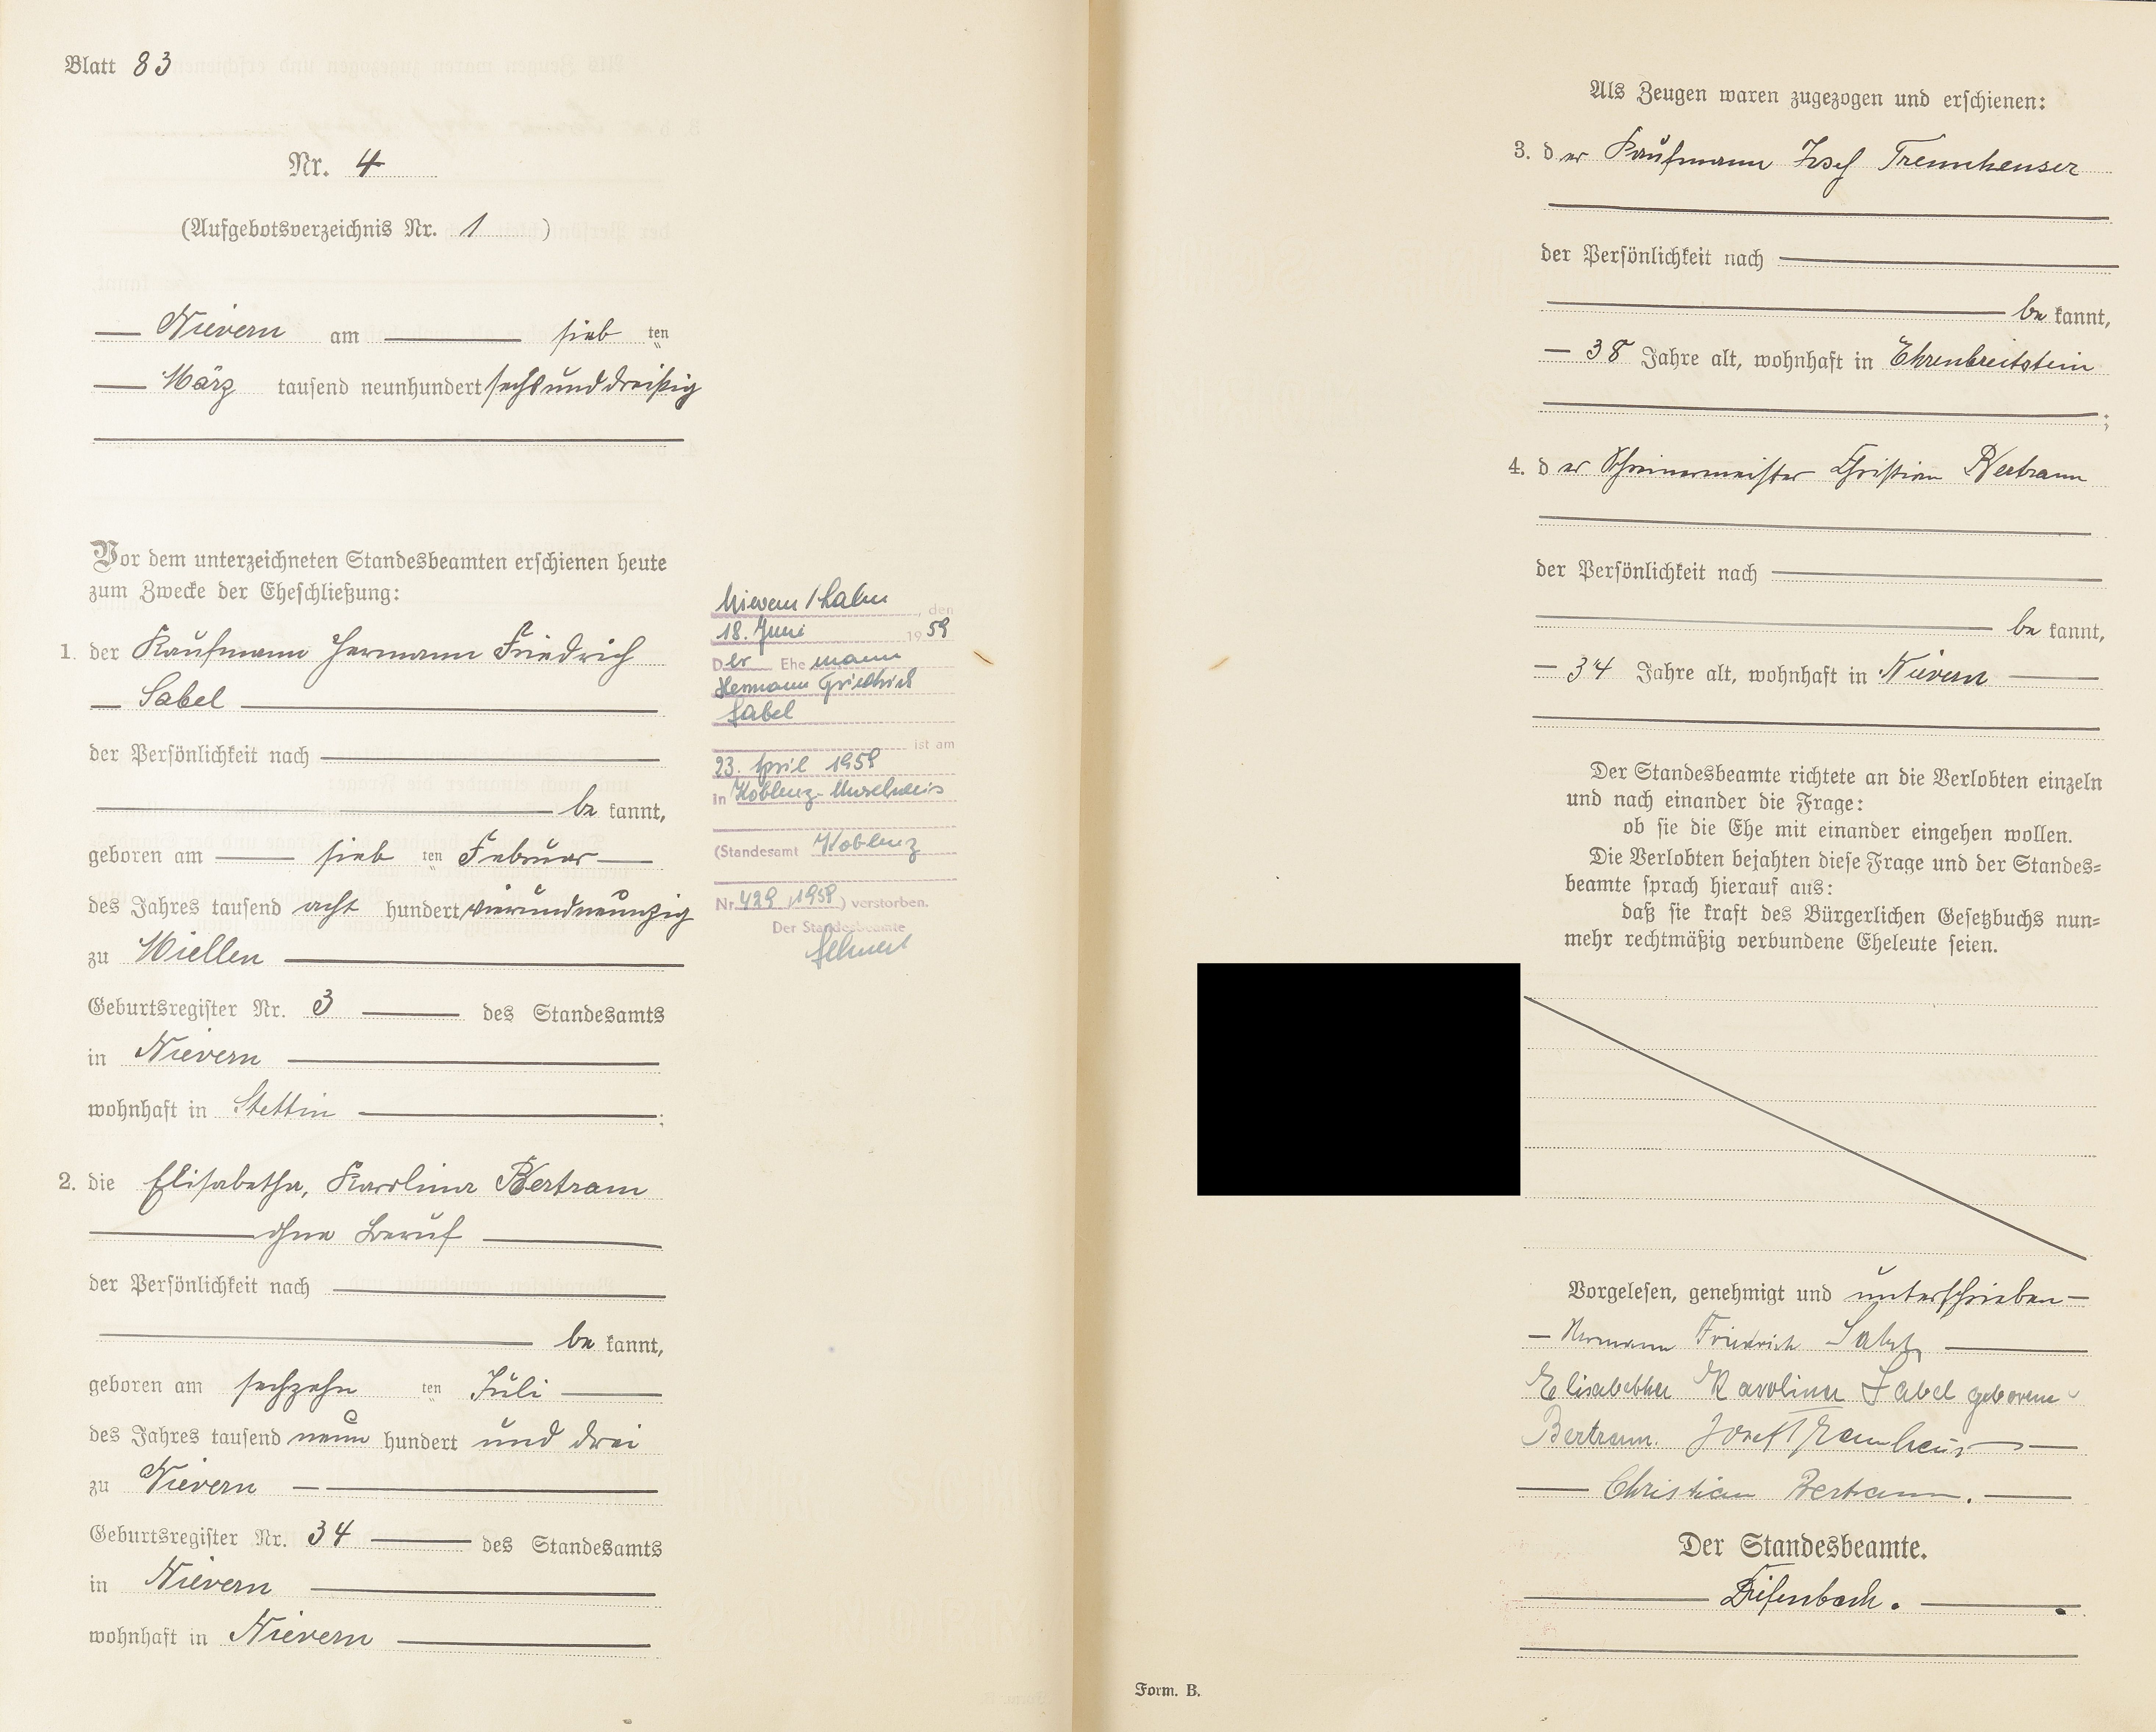 Blatt 83
Nr. 4
(Aufgebotsverzeichnis Nr. 1 )
Nievern am sieb ten
März tausend neunhundert sechsunddreißig
Vor dem unterzeichneten Standesbeamten erschienen heute
zum Zwecke der Eheschließung:
1. der Kaufmann Hermann Friedrich
Sabel
der Persönlichkeit nach
be kannt,
geboren am sieb ten Februar
des Jahres tausend acht hundert vierundneunzig
zu Miellen
Geburtsregister Nr. 3 des Standesamts
in Nievern
wohnhaft in Stettin ;
2. die Elisabetha, Karolina Bertram
ohne Beruf
der Persönlichkeit nach
be kannt,
geboren am sechzehn ten Juli
des Jahres tausend neun hundert und drei
zu Nievern
Geburtsregister Nr. 34 des Standesamts
in Nievern
wohnhaft in Nievern
Nievern / Lahn , den
18. Juni 1959
Der Ehemann
Hermann Friedrich
Sabel
ist am
23. April 1959
in Koblenz-
(Standesamt Koblenz
Nr. 429 / 1959 ) verstorben.
Der Standesbeamte
Als Zeugen waren zugezogen und erschienen:
3. der Kaufmann Josef Trennheuser
der Persönlichkeit nach
be kannt,
38 Jahre alt, wohnhaft in Ehrenbreitstein
;
4. der Schreinermeister Christian Bertram
der Persönlichkeit nach
be kannt,
34 Jahre alt, wohnhaft in Nievern
Der Standesbeamte richtete an die Verlobten einzeln
und nach einander die Frage:
ob sie die Ehe mit einander eingehen wollen.
Die Verlobten bejahten diese Frage und der Standes-
beamte sprach hierauf aus:
daß sie kraft des Bürgerlichen Gesetzbuchs nun-
mehr rechtmäßig verbundene Eheleute seien.
Vorgelesen, genehmigt und unterschrieben
Hermann Friedrich Sabel
Elisabetha Karolina Sabel geborene
Bertram. Josef Trennheuser
Christian Bertram.
Der Standesbeamte.
Diefenbach.
Form. B.